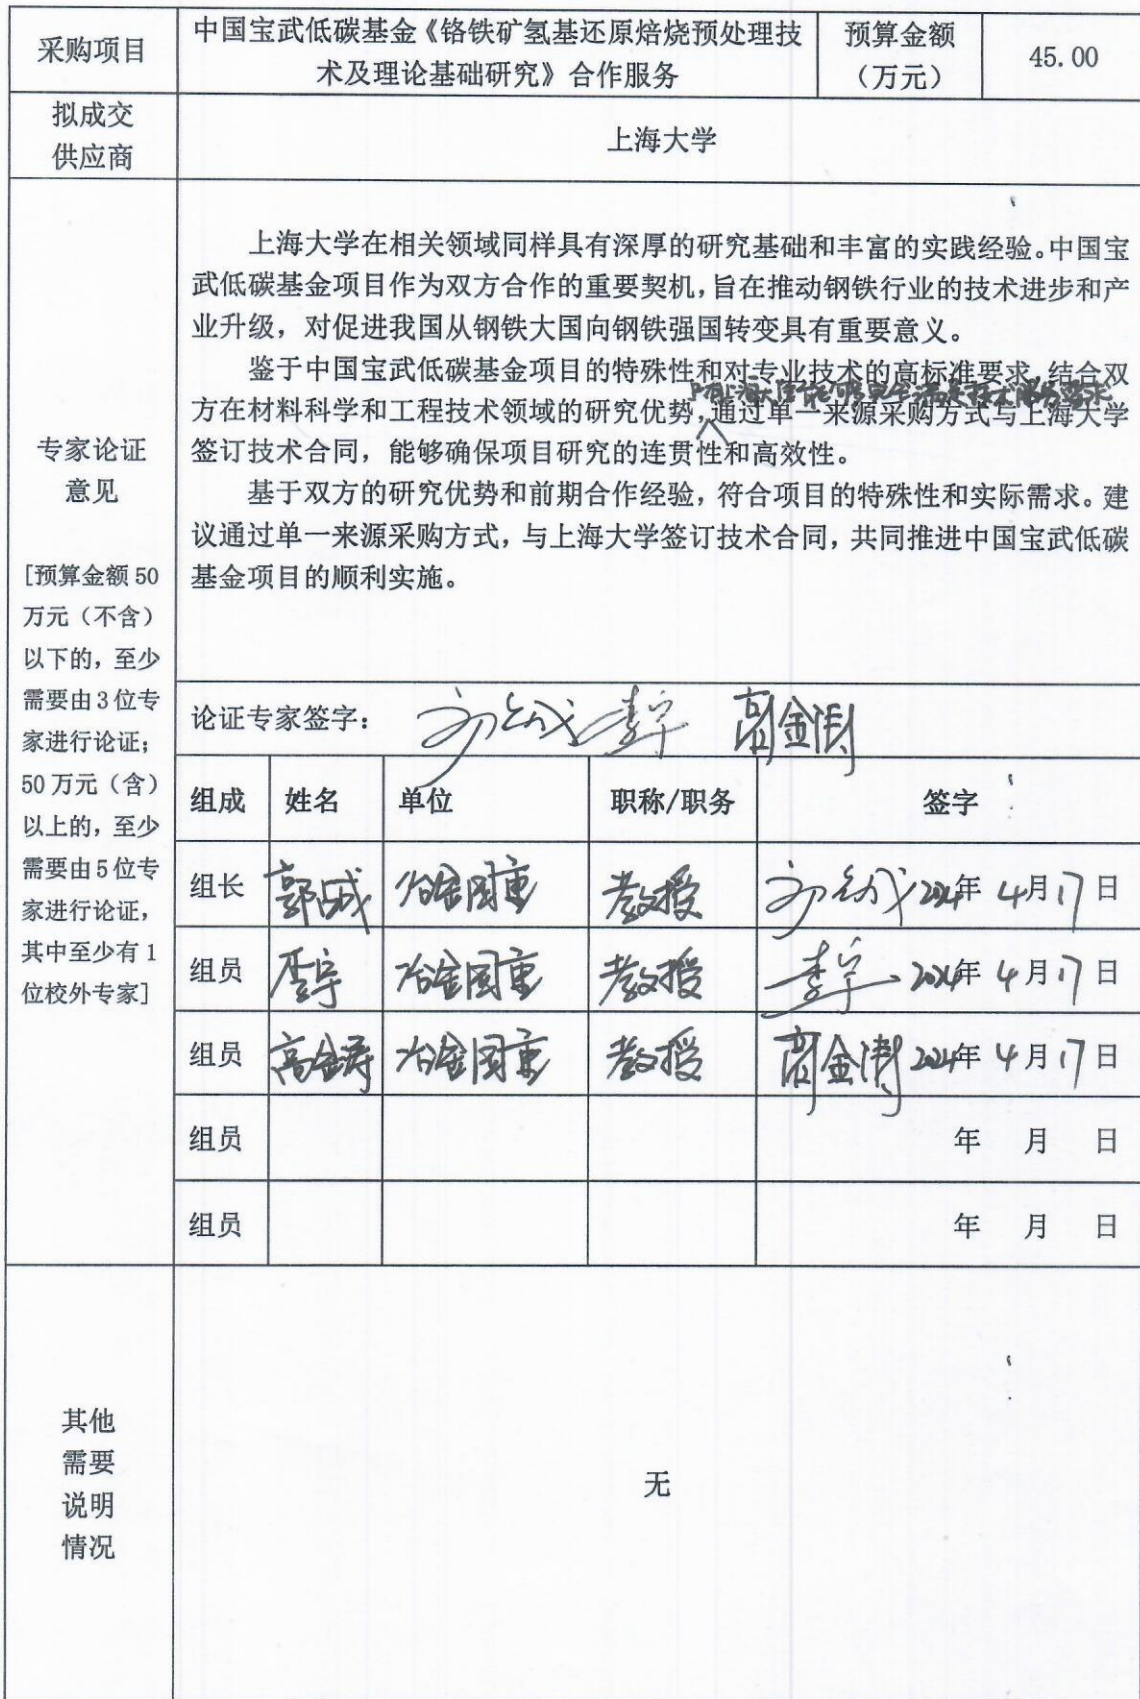 采购项目
中国宝武低碳基金《铬铁矿氢基还原焙烧预处理技
术及理论基础研究》合作服务
预算金额
（万元）
45.00
拟成交
供应商
上海大学
专家论证
意见
[预算金额50
万元（不含）
以下的，至少
需要由3位专
家进行论证；
50万元（含）
以上的，至少
需要由5位专
家进行论证，
其中至少有1
位校外专家]
上海大学在相关领域同样具有深厚的研究基础和丰富的实践经验。中国宝
武低碳基金项目作为双方合作的重要契机，旨在推动钢铁行业的技术进步和产
业升级，对促进我国从钢铁大国向钢铁强国转变具有重要意义。
鉴于中国宝武低碳基金项目的特殊性和对专业技术的高标准要求，结合双
方在材料科学和工程技术领域的研究优势，通过单一来源采购方式与上海大学
签订技术合同，能够确保项目研究的连贯性和高效性。
基于双方的研究优势和前期合作经验，符合项目的特殊性和实际需求。建
议通过单一来源采购方式，与上海大学签订技术合同，共同推进中国宝武低碳
基金项目的顺利实施。
论证专家签字： 李宇
组成 姓名 单位 职称/职务 签字
组长 冶金国重 教授 2024年 4月17日
组员 李宇 冶金国重 教授 李宇 2024年 4月17日
组员 高金涛 冶金国重 教授 高金涛 2024年 4月17日
组员 年 月 日
组员 年 月 日
其他
需要
说明
情况
无